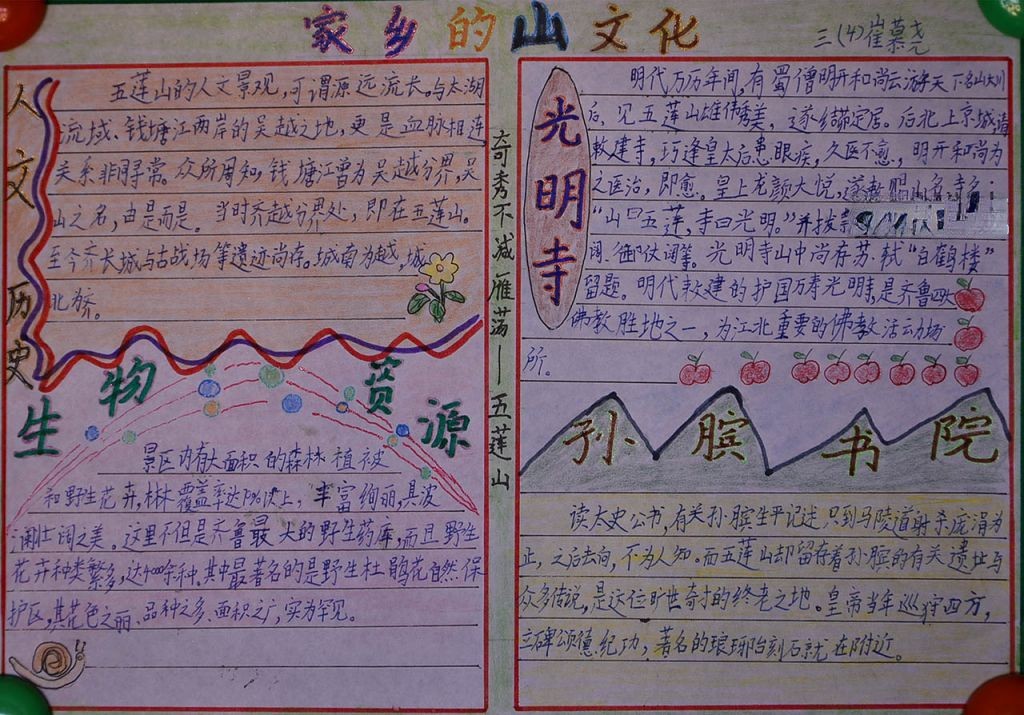 家乡的山文化
三(4)崔慕尧
人文历史
五莲山的人文景观,可谓源远流长。与太湖
流域、钱塘江两岸的吴越之地,更是血脉相连
关系非同寻常。众所周知,钱塘江曾为吴越分界,吴
山之名,由是而是。当时齐越分界处,即在五莲山。
至今齐长城与古战场等遗迹尚存。城南为越,城
北为齐。
生物资源
景区内有大面积的森林植被
和野生花卉,林覆盖率达 以上,丰富绚丽,具波
澜壮阔之美。这里不但是齐鲁最大的野生药库,而且野生
花卉种类繁多,达4000余种,其中最著名的是野生杜鹃花自然保
护区,其花色之丽、品种之多、面积之广,实为罕见。
奇秀不减雁荡—五莲山
光明寺
明代万历年间,有蜀僧明开和尚云游天下名山大川
后,见五莲山雄伟秀美,遂结茆定居。后北上京城请
敕建寺,巧逢皇太后患眼疾,久医不愈,明开和尚为
之医治,即愈。皇上龙颜大悦,遂敕赐山名寺名:
“山曰五莲,寺曰光明。”并拨
阔、御仗调等。光明寺山中尚存苏轼“白鹤楼”
留题。明代敕建的护国万寿光明寺,是齐鲁四大
佛教胜地之一,为江北重要的佛教活动场
所。
孙膑书院
读太史公书,有关孙膑生平记述只到马陵道射杀庞涓为
止,之后去向,不为人知。而五莲山却留存着孙膑的有关遗址与
众多传说,是这位旷世奇才的终老之地。皇帝当年巡狩四方,
立碑颂德纪功,著名的琅琊台刻石就在附近。